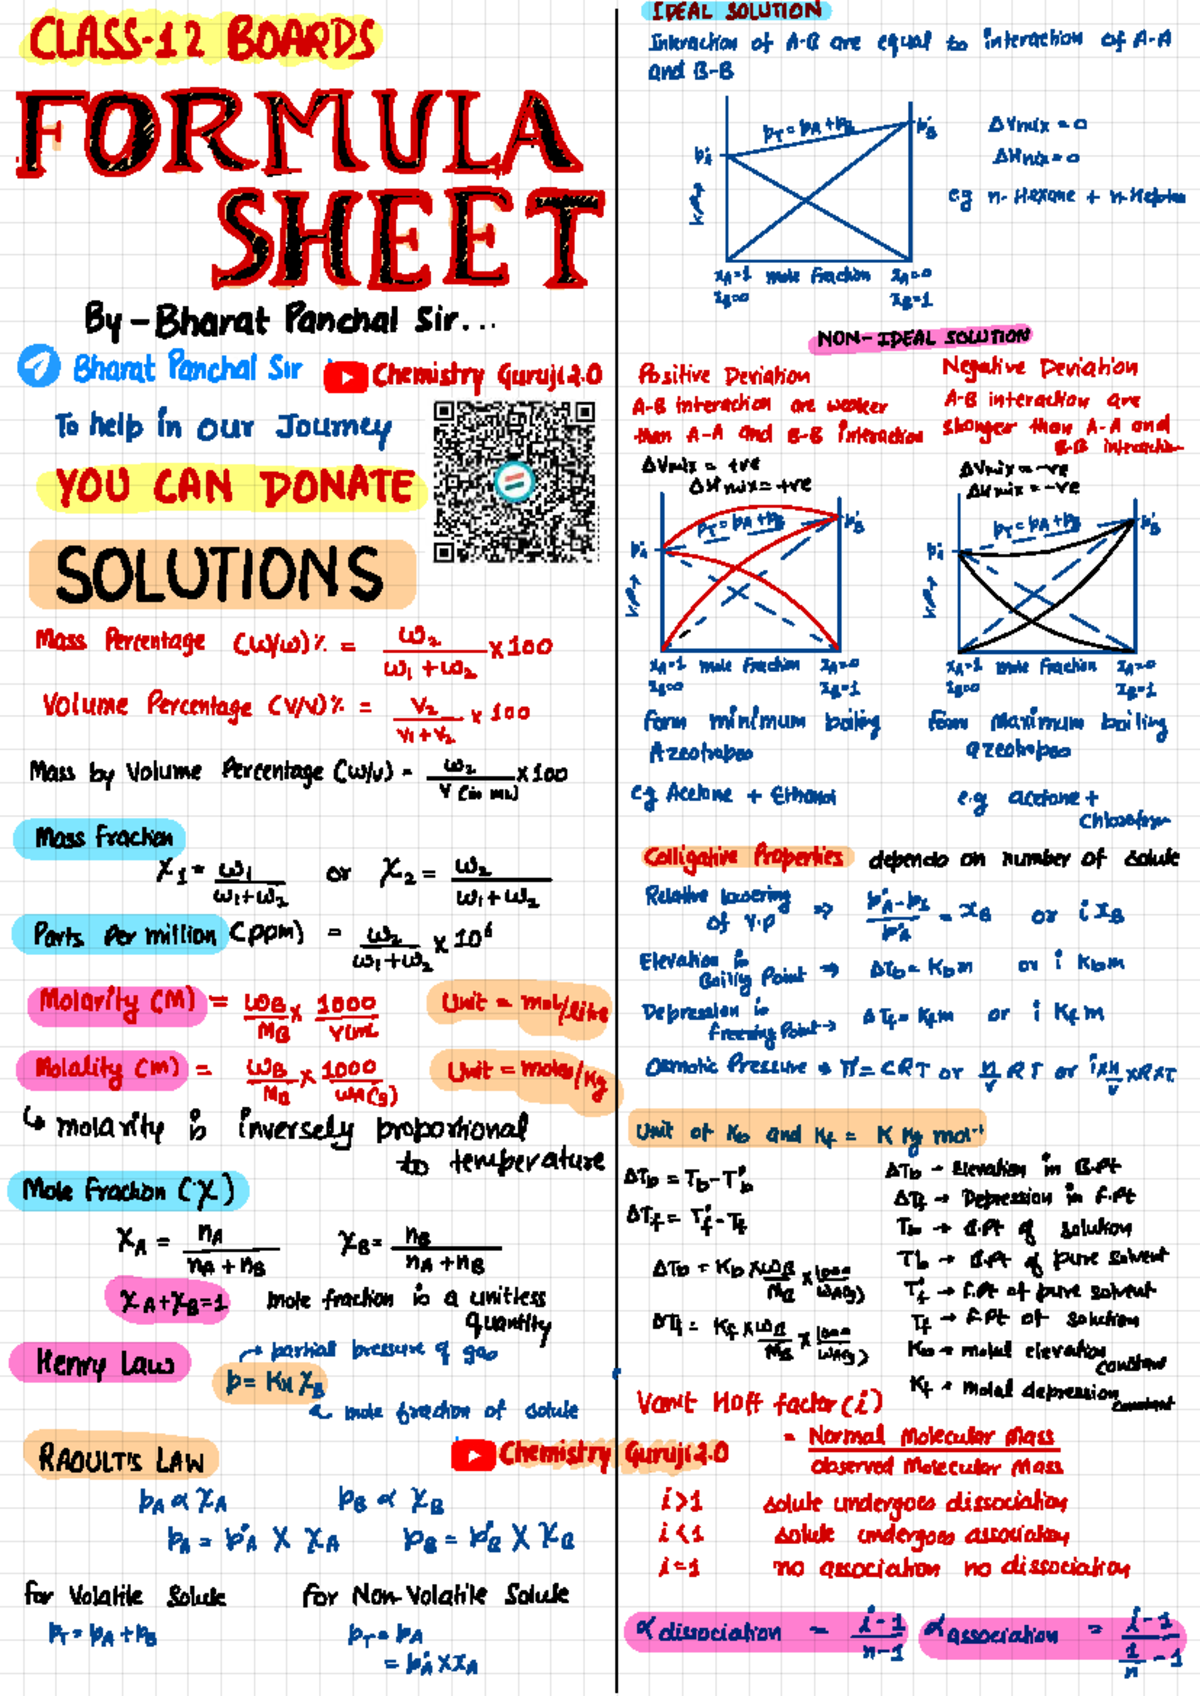 CLASS-12 BOARDS
FORMULA
SHEET
By - Bharat Panchal Sir...
Bharat Panchal Sir
Chemistry Guruji 2.0
To help in our Journey
YOU CAN DONATE
SOLUTIONS
Mass Percentage (w/w)% = w₂/(w₁ + w₂) × 100
Volume Percentage (v/v)% = V₂/(V₁ + V₂) × 100
Mass by Volume Percentage (w/v) = w₂/V (in mL) × 100
Mass fraction
χ₁ = w₁/(w₁+w₂) or χ₂ = w₂/(w₁+w₂)
Parts Per million (ppm) = w₂/(w₁+w₂) × 10⁶
Molarity (M) = w_B/M_B × 1000/V(mL) Unit = mol/litre
Molality (m) = w_B/M_B × 1000/w_A(g) Unit = moles/kg
↳ molarity is inversely proportional
to temperature
Mole fraction (χ)
χ_A = n_A/(n_A + n_B) χ_B = n_B/(n_A + n_B)
χ_A + χ_B = 1 mole fraction is a unitless
quantity
Henry Law
→ partial pressure of gas
p = K_H χ_B
mole fraction of solute
RAOULT'S LAW
Chemistry Guruji 2.0
p_A ∝ χ_A p_B ∝ χ_B
p_A = p°_A × χ_A p_B = p°_B × χ_B
for Volatile Solute for Non-Volatile Solute
p_T = p_A + p_B p_T = p_A
= p°_A × x_A
IDEAL SOLUTION
Interaction of A-B are equal to interaction of A-A
and B-B
p_T = p_A + p_B
p°_A
p°_B
V.P →
ΔVmix = 0
ΔHmix = 0
eg n-Hexane + n-Heptane
x_A=1 mole fraction x_A=0
x_B=0 x_B=1
NON-IDEAL SOLUTION
Positive Deviation
A-B interaction are weaker
than A-A and B-B interaction
ΔVmix = +ve
ΔHmix = +ve
p_T = p_A + p_B
p°_A
p°_B
V.P →
x_A=1 mole fraction x_A=0
x_B=0 x_B=1
form minimum boiling
Azeotropes
eg Acetone + Ethanol
Negative Deviation
A-B interaction are
stronger than A-A and
B-B interaction
ΔVmix = -ve
ΔHmix = -ve
p_T = p_A + p_B
p°_A
p°_B
V.P →
x_A=1 mole fraction x_A=0
x_B=0 x_B=1
form Maximum boiling
azeotropes
e.g acetone +
Chloroform
Colligative Properties depends on number of solute
Relative lowering
of V.P ⇒ (p°_A - p_s)/p°_A = x_B or i x_B
Elevation in
Boiling Point → ΔT_b = K_b m or i K_b m
Depression in
freezing Point → ΔT_f = K_f m or i K_f m
Osmotic Pressure → π = CRT or n/v RT or i×n/v ×R×T
Unit of K_b and K_f = K Kg mol⁻¹
ΔT_b = T_b - T°_b
ΔT_f = T°_f - T_f
ΔT_b = K_b × w_B/M_B × 1000/w_A(g)
ΔT_f = K_f × w_B/M_B × 1000/w_A(g)
ΔT_b → Elevation in B.Pt
ΔT_f → Depression in F.Pt
T_b → B.Pt of solution
T°_b → B.Pt of pure solvent
T°_f → F.Pt of pure solvent
T_f → F.Pt of solution
K_b → molal elevation
constant
K_f → molal depression
constant
Vanit Hoff factor (i)
= Normal Molecular Mass
observed Molecular Mass
i>1 solute undergoes dissociation
i<1 solute undergoes association
i=1 no association no dissociation
α dissociation = (i-1)/(n-1) α association = (i-1)/(1/n - 1)